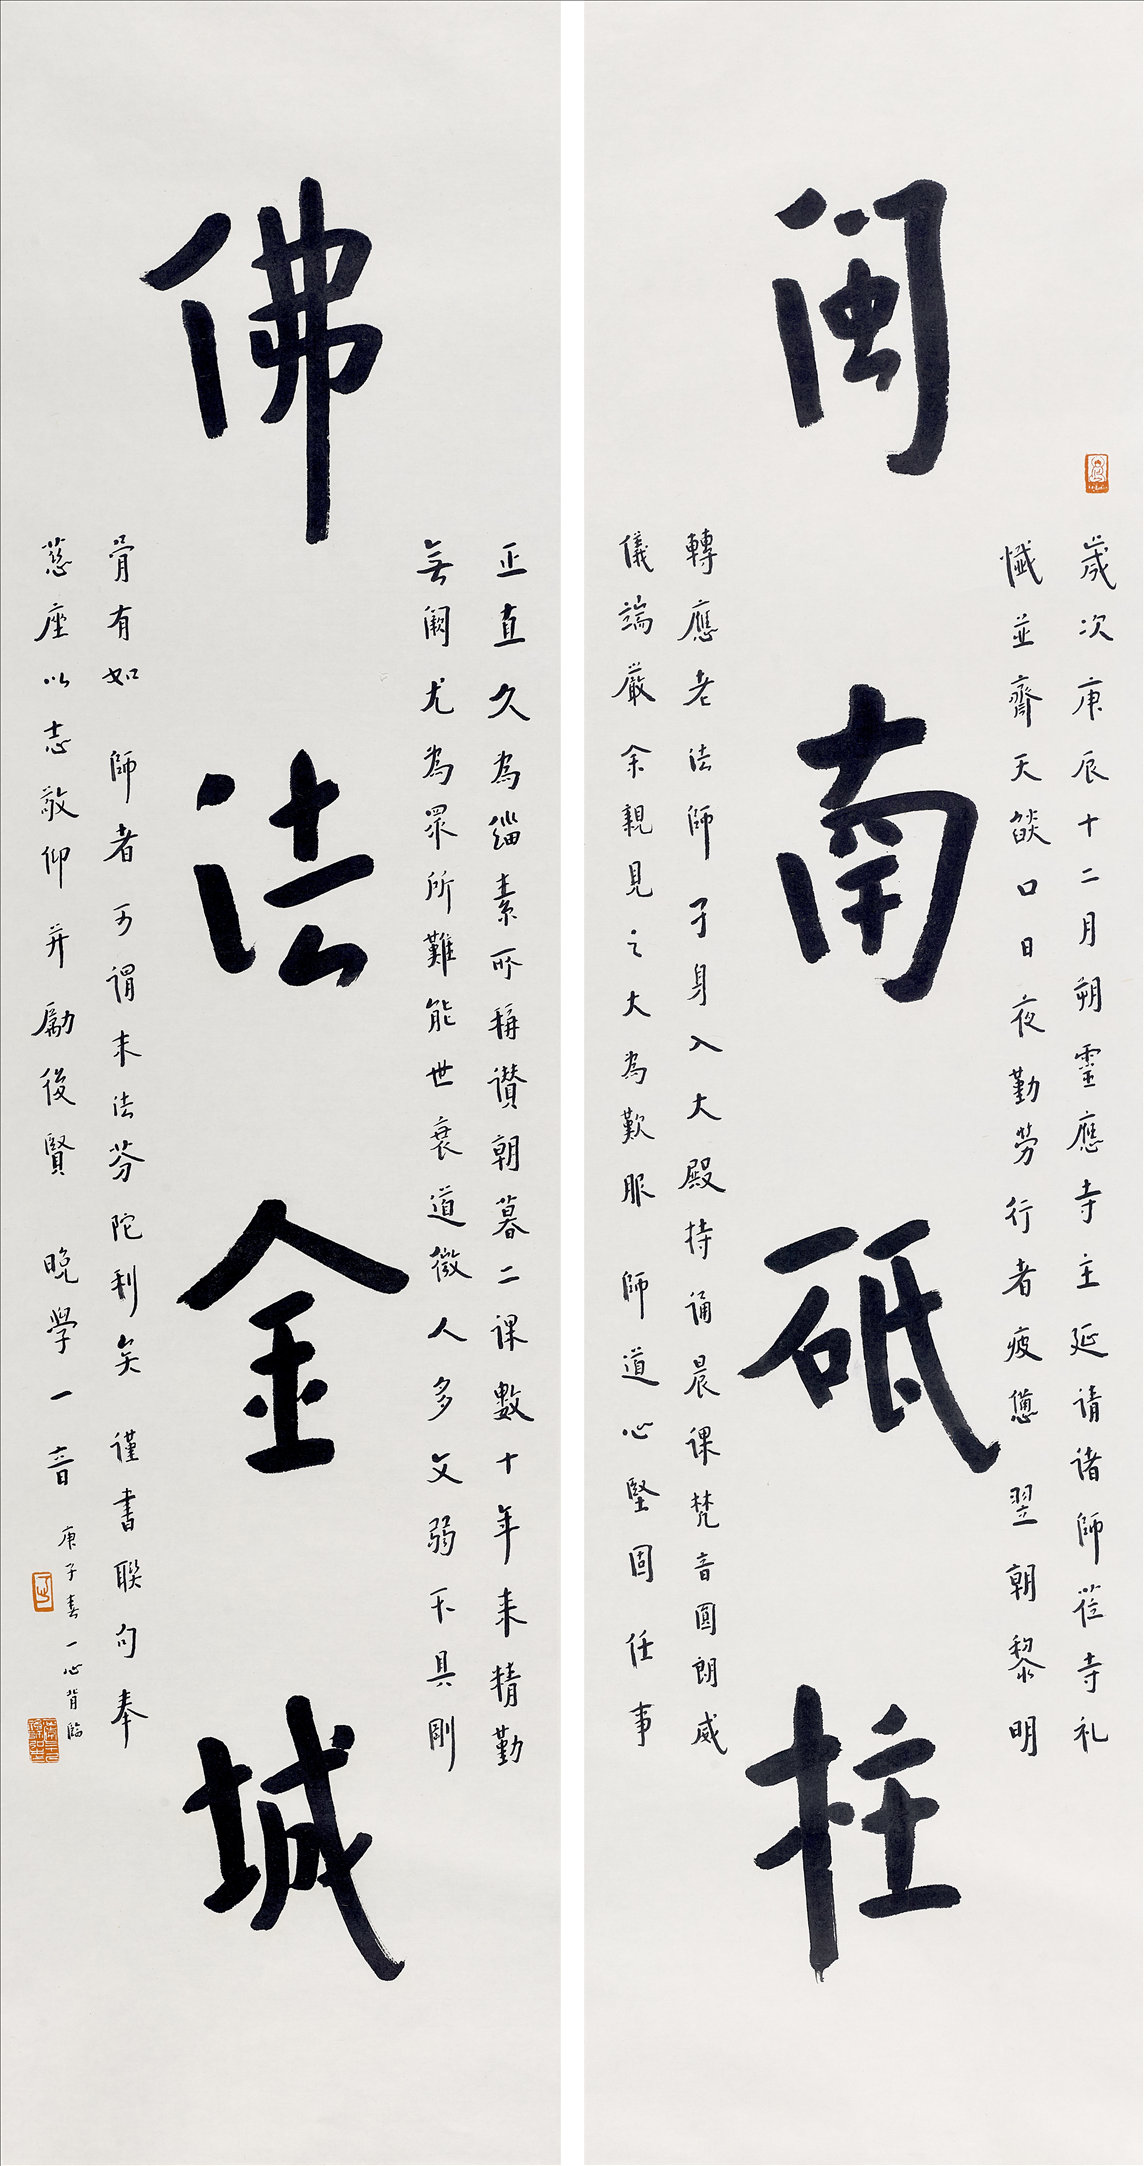 閩南砥柱
歲次庚辰十二月朔靈應寺主延请诸師莅寺礼
懺並齋天燄口日夜勤劳行者疲憊 翌朝黎明
轉應老法師孑身入大殿持诵晨课梵音圓朗威
儀端嚴余親見之大為歎服 師道心堅固任事
佛法金城
正直久為緇素所稱讃朝暮二课數十年来精勤
無阙尤為眾所難能世衰道微人多文弱不具剛
骨有如 師者可谓末法芬陀利矣 谨書聯句奉
慈座以志敬仰并勵後賢 晚學一音
庚子春一心背臨